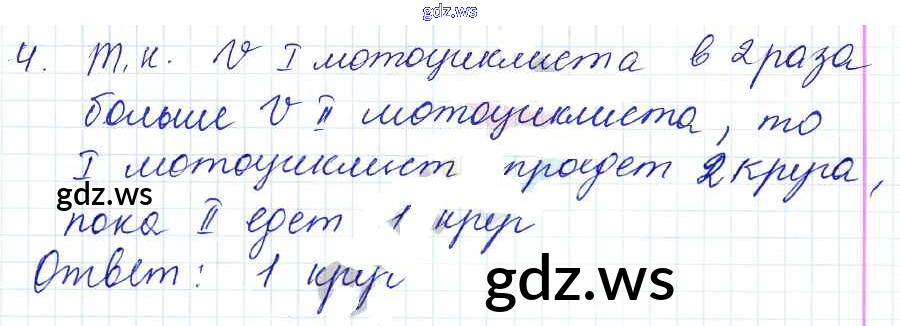 gdz.ws
4. Т.к. V I мотоциклиста в 2 раза
больше V II мотоциклиста, то
I мотоциклист проедет 2 круга,
gdz.ws
пока II едет 1 круг
Ответ: 1 круг
gdz.ws